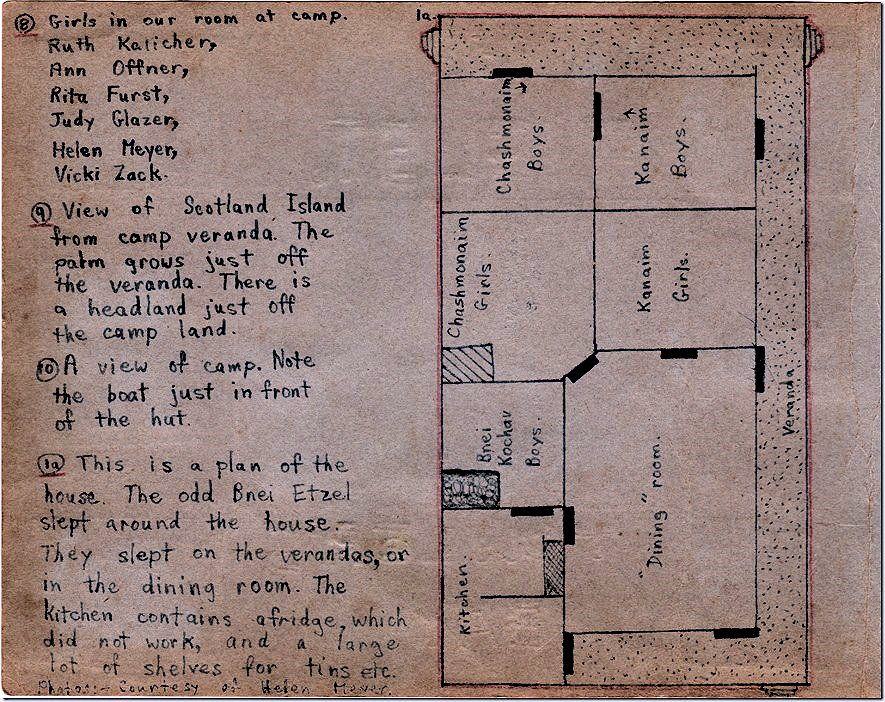 ⑧ Girls in our room at camp.
Ruth Kalicher,
Ann Offner,
Rita Furst,
Judy Glazer,
Helen Meyer,
Vicki Zack.
⑨ View of Scotland Island
from camp veranda. The
palm grows just off
the veranda. There is
a headland just off
the camp land.
⑩ A view of camp. Note
the boat just in front
of the hut.
1a This is a plan of the
house. The odd Bnei Etzel
slept around the house.
They slept on the verandas, or
in the dining room. The
kitchen contains a fridge, which
did not work, and a large
lot of shelves for tins etc.
Photos:- Courtesy of Helen Meyer.
1a.
Chashmonaim
Boys.
Kanaim
Boys.
Chashmonaim
Girls.
Kanaim
Girls.
Bnei
Kochav
Boys.
"Dining" room.
Kitchen.
Veranda